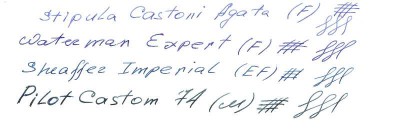 Stipula Castoni Agata (F)
Waterman Expert (F)
Sheaffer Imperial (EF)
Pilot Castom 74 (M)